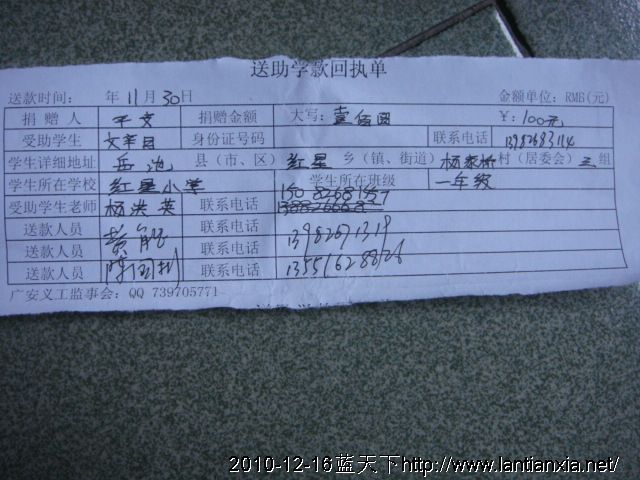 送助学款回执单
送款时间： 年11月30日 金额单位：RMB(元)
捐赠人 于文 捐赠金额 大写：壹佰圆 ¥：100元
受助学生 身份证号码 联系电话
学生详细地址 岳池 县（市、区） 红星 乡（镇、街道） 杨家桥 村（居委会） 三 组
学生所在学校 红星小学 学生所在班级 一年级
受助学生老师 杨洪英 联系电话
送款人员 联系电话
送款人员 联系电话 13551628826
送款人员 联系电话
广安义工监事会：QQ 739705771
2010-12-16蓝天下http://www.lantianxia.net/